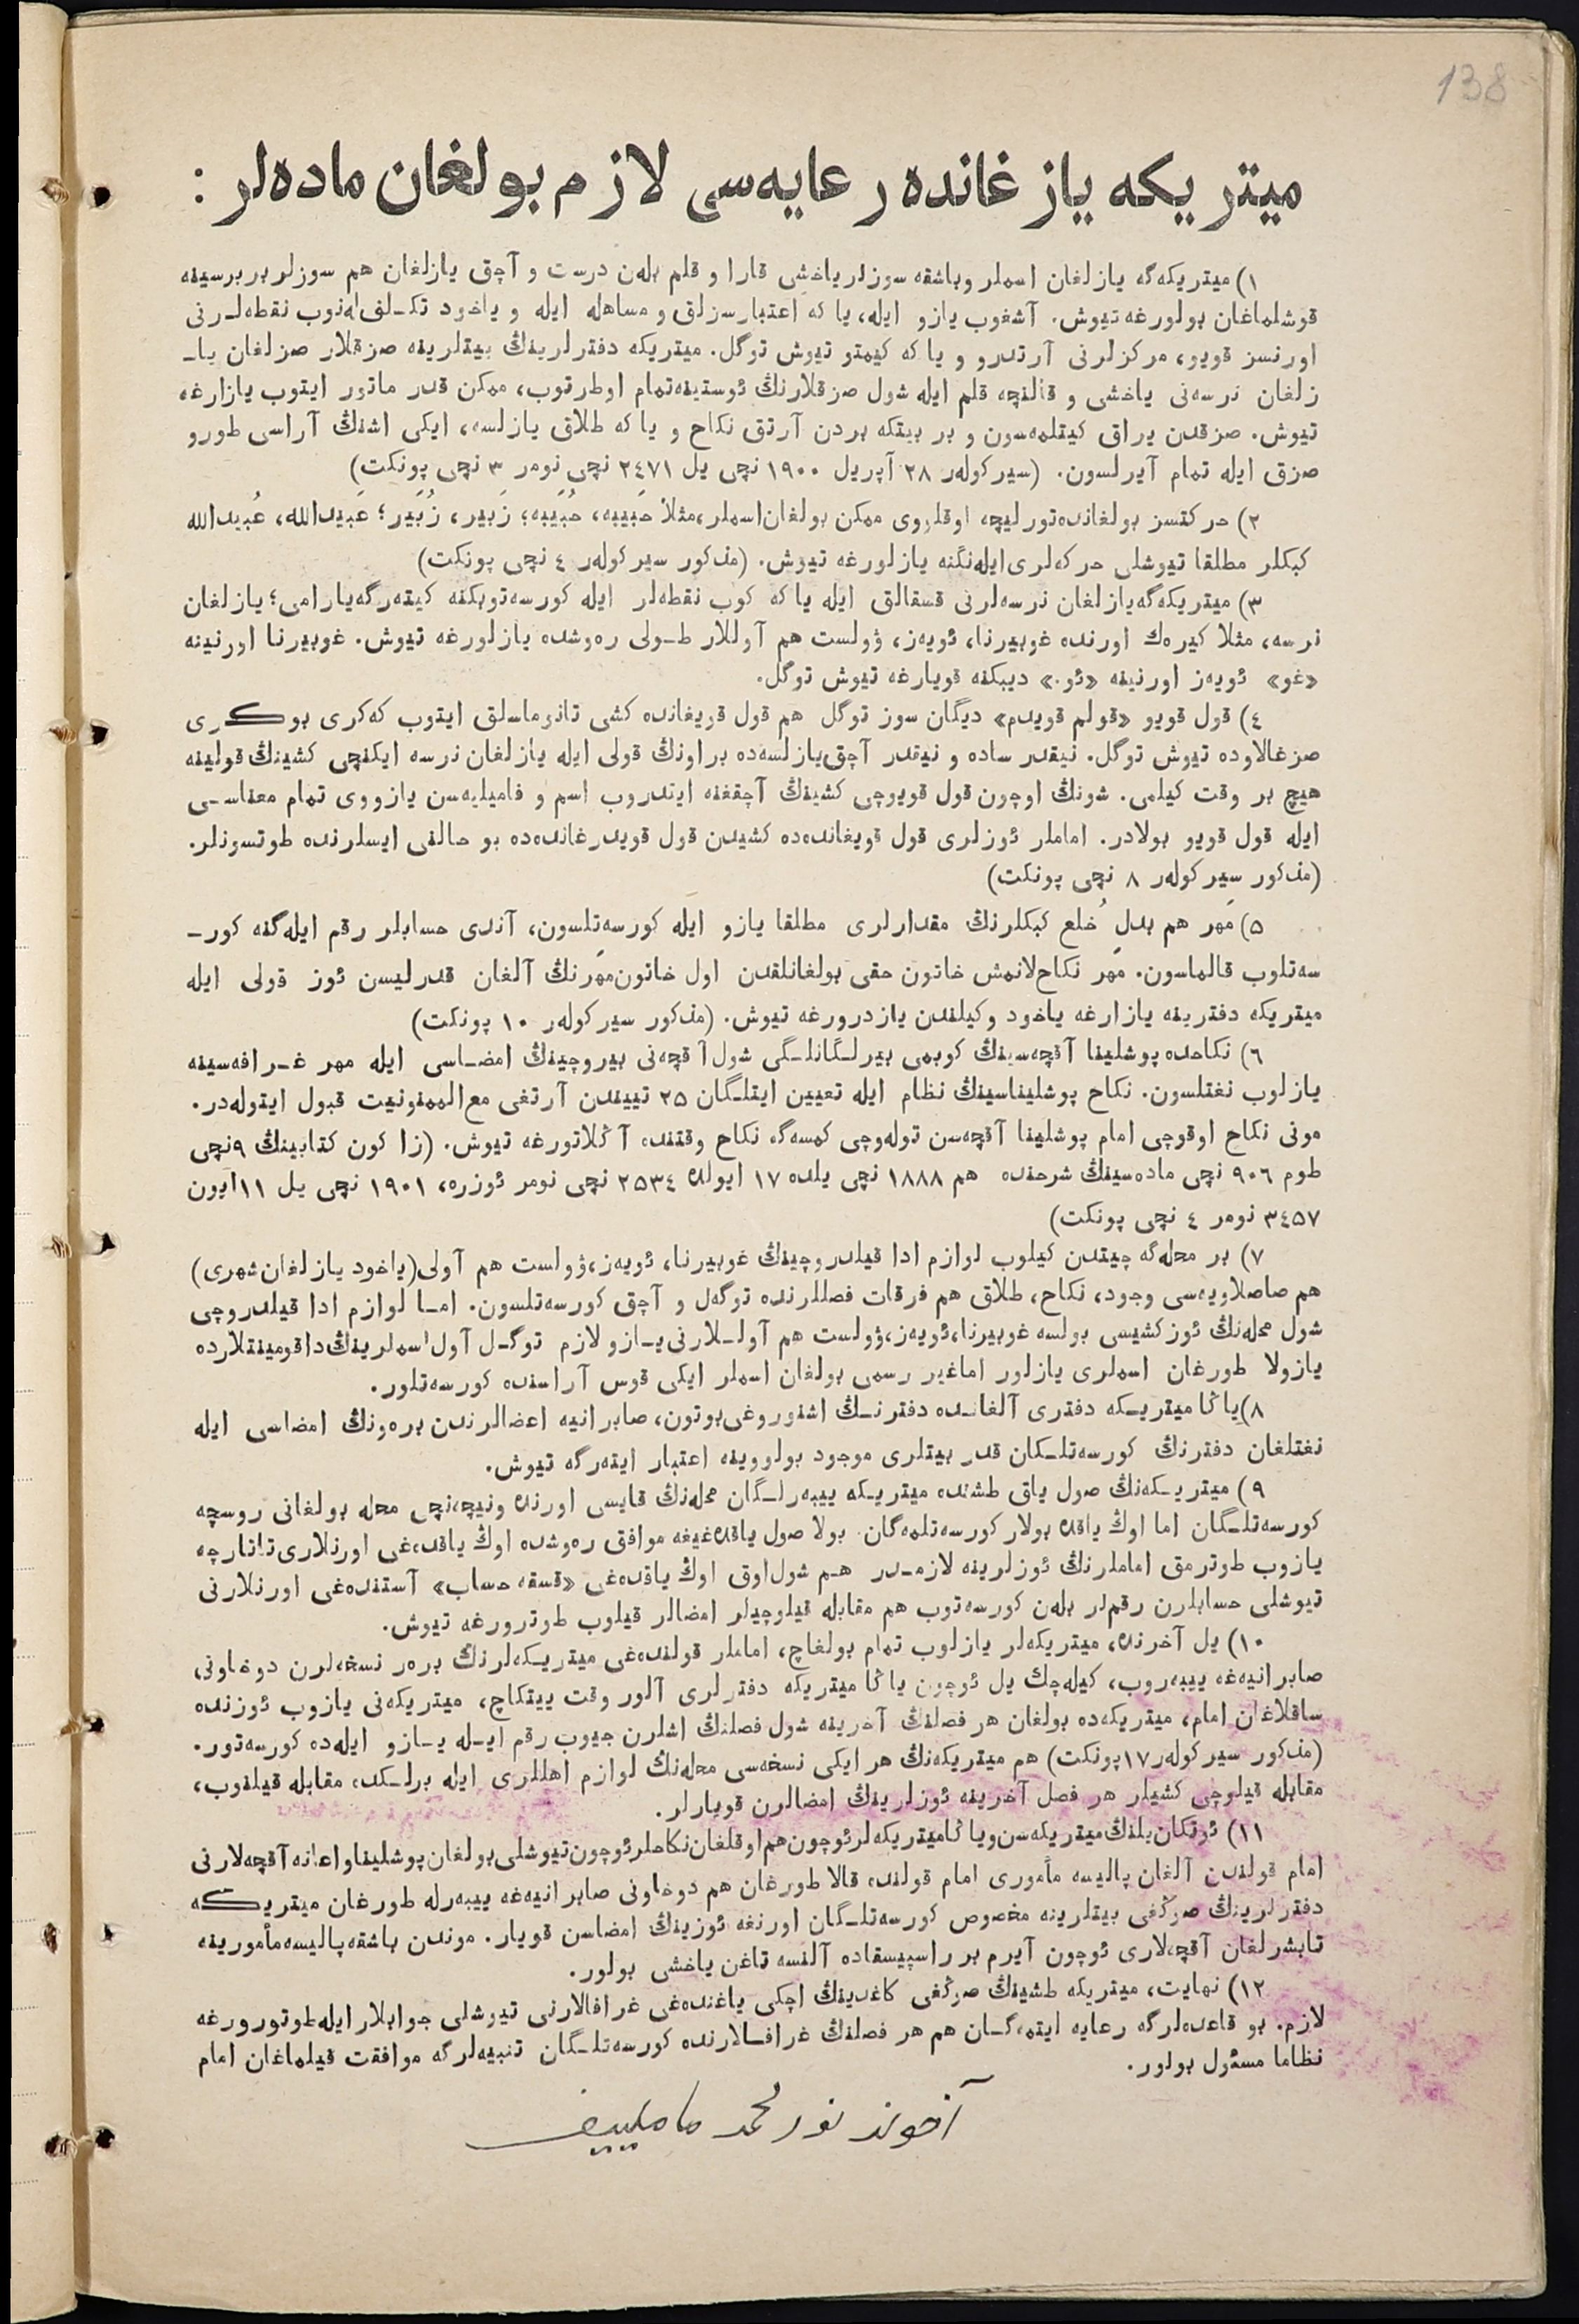 138
میتریکه یازغانده رعایه‌سی لازم بولغان ماده‌لر :
١) میتریکه‌گه یازلغان اسملر وباشقه سوزلر یاخشی قارا و قلم بله‌ن درست و آچق یازلغان هم سوزلر بر برسینه
قوشلماغان بولورغه تیوش. آشغوب یازو ایله، یا که اعتبارسزلق و مساهله ایله و یاخود تکـلف‌له‌نوب نقطه‌لـرنی
اورنسز قویو، مرکزلرنی آرتدرو و یا که کیمتو تیوش توگل. میتریکه دفترلرینڭ بیتلرینه صزقلار صزلغان یا-
زلغان نرسه‌نی یاخشی و قالنچه قلم ایله شول صزقلارنڭ ئوستینه‌تمام اوطرتوب، ممکن قدر ماتور ایتوب یازارغه
تیوش. صزقدن یراق کیتلمه‌سون و بر بیتکه بردن آرتق نکاح و یا که طلاق یازلسه، ایکی اشنڭ آراسی طورو
صزق ایله تمام آیرلسون. (سیرکوله‌ر ٢٨ آپریل ١٩٠٠ نچی یل ٢٤٧١ نچی نومر ٣ نچی پونکت)
٢) حرکتسز بولغانده‌تورلیچه اوقلروی ممکن بولغان‌اسملر،مثلاً حَبیبه، حُبَیبه؛ زَبیر، زُبَیر؛ عَبیدالله، عُبیدالله
کبکلر مطلقا تیوشلی حرکه‌لری‌ایله‌نگنه یازلورغه تیوش. (مذکور سیرکوله‌ر ٤ نچی پونکت)
٣) میتریکه‌گه‌یازلغان نرسه‌لرنی قسقالق ایله یا که کوب نقطه‌لر ایله کورسه‌توبکنه کیته‌رگه‌یارامی؛ یازلغان
نرسه، مثلا کیره‌ك اورنده غوبیرنا، ئویه‌ز، ۋولست هم آوللار طـولی ره‌وشده یازلورغه تیوش. غوبیرنا اورنینه
«غو» ئویه‌ز اورنینه «ئو.» دیبکنه قویارغه تیوش توگل.
٤) قول قویو «قولم قویدم» دیگان سوز توگل هم قول قویغانده کشی تانوماسلق ایتوب که‌کری بوکـری
صزغالاوده تیوش توگل. نیقدر ساده و نیقدر آچق‌یازلسه‌ده براونڭ قولی ایله یازلغان نرسه ایکنچی کشینڭ قولینه
هیچ بر وقت کیلمی. شونڭ اوچون قول قویوچی کشینڭ آچقغنه ایتدروب اسم و فامیلیه‌سن یازووی تمام معناسـی
ایله قول قویو بولادر. اماملر ئوزلری قول قویغانده‌ده کشیدن قول قویدرغانده‌ده بو حالنی ایسلرنده طوتسونلر.
(مذکور سیرکوله‌ر ٨ نچی پونکت)
٥) مَهر هم بدلِ خُلع کبکلرنڭ مقدارلری مطلقا یازو ایله کورسه‌تلسون، آندی حسابلر رقم ایله‌گنه کور-
سه‌تلوب قالماسون. مَهر نکاح‌لانمش خاتون حقی بولغانلقدن اول خاتون‌مهرنڭ آلغان قدرلیسن ئوز قولی ایله
میتریکه دفترینه یازارغه یاخود وکیلندن یازدرورغه تیوش. (مذکور سیرکوله‌ر ١٠ پونکت)
٦) نکاحده پوشلینا آقچه‌سینڭ کوبمی بیرلـگانلـگی شول‌آقچه‌نی بیروچینڭ امضـاسی ایله مهر غـرافه‌سینه
یازلوب نغتلسون. نکاح پوشلیناسینڭ نظام ایله تعیین ایتلـگان ٢٥ تییندن آرتغی مع‌الممنونیت قبول ایتوله‌در.
مونی نکاح اوقوچی امام پوشلینا آقچه‌سن توله‌وچی کمسه‌گه نکاح وقتنده آڭلاتورغه تیوش. (زا کون کتابینڭ ٩نچی
طوم ٩٠٦ نچی ماده‌سینڭ شرحنده هم ١٨٨٨ نچی یلده ١٧ ایولده ٢٥٣٤ نچی نومر ئوزره، ١٩٠١ نچی یل ١١ایون
٣٤٥٧ نومر ٤ نچی پونکت)
٧) بر محله‌گه چیتدن کیلوب لوازم ادا قیلدروچینڭ غوبیرنا، ئویه‌ز،ۋولست هم آولی(یاخود یازلغان‌شهری)
هم صاصلاویه‌سی وجود، نکاح، طلاق هم فرقات فصللرنده توگه‌ل و آچق کورسه‌تلسون. امـا لوازم ادا قیلدروچی
شول محله‌نڭ ئوز کشیسی بولسه غوبیرنا،ئویه‌ز،ۋولست هم آولـلارنی‌یـازو لازم توگـل آول اسملرینڭ‌داقومینتلارده
یازولا طورغان اسملری یازلور اماغیر رسمی بولغان اسملر ایکی قوس آراسنده کورسه‌تلور.
٨)یاڭا میتریـکه دفتری آلغانـده دفترنـڭ اشنوروغی‌بوتون، صابرانیه اعضالرندن بره‌ونڭ امضاسی ایله
نغتلغان دفترنڭ کورسه‌تلـکان قدر بیتلری موجود بولووینه اعتبار ایته‌رگه تیوش.
٩) میتریـکه‌نڭ صول یاق طشنده میتریـکه ییبه‌رلـگان محله‌نڭ قایسی اورنده ونیچه‌نچی محله بولغانی روسچه
کورسه‌تلـگان اما اوڭ یاقده بولار کورسه‌تلمه‌گان. بولا صول یاقده‌غیغه موافق ره‌وشده اوڭ یاقده‌غی اورنلاری‌تاتارچه
یازوب طوترمق اماملرنڭ ئوزلرینه لازمـدر هـم شول‌اوق اوڭ یاقده‌غی «قسقه حساب» آستنده‌غی اورنلارنی
تیوشلی حسابلرن رقم‌لر بله‌ن کورسه‌توب هم مقابله قیلوچیلر امضالر قیلوب طوترورغه تیوش.
١٠) یل آخرنده، میتریکه‌لر یازلوب تمام بولغاچ، اماملر قولنده‌غی میتریـکه‌لرنڭ بره‌ر نسخه‌لرن دوخاونی
صابرانیه‌غه ییبه‌روب، کیله‌چك یل ئوچون یاڭا میتریکه دفترلری آلور وقت ییتکاچ، میتریکه‌نی یازوب ئوزنده
ساقلاغان امام، میتریکه‌ده بولغان هر فصلنڭ آخرینه شول فصلنڭ اشلرن جیوب رقم ایـله یـازو ایله‌ده کورسه‌تور.
(مذکور سیرکوله‌ر١٧پونکت) هم میتریکه‌نڭ هر ایکی نسخه‌سی محله‌نڭ لوازم اهللری ایله برلـکده مقابله قیلنوب،
مقابله قیلوچی کشیلر هر فصل آخرینه ئوزلرینڭ امضالرن قویارلر.
١١) ئوتکان‌یلنڭ‌میتریکه‌سن‌ویاڭامیتریکه‌لرئوچون‌هم‌اوقلغان‌نکاحلرئوچون‌تیوشلی‌بولغان‌پوشلیناواعانه‌آقچه‌لارنی
امام قولندن آلغان پالیسه مأموری امام قولنده قالا طورغان هم دوخاونی صابرانیه‌غه ییبه‌رله طورغان میتریکـه
دفترلرینڭ صوڭغی بیتلرینه مخصوص کورسه‌تلـگان اورنغه ئوزینڭ امضاسن قویار. موندن باشقه‌پالیسه‌مأمورینه
تابشرلغان آقچه‌لاری ئوچون آیرم بر راسپیسقاده آلنسه تاغن یاخشی بولور.
١٢) نهایت، میتریکه طشینڭ صوڭغی کاغدینڭ اچکی یاغنده‌غی غرافالارنی تیوشلی جوابلار ایله‌طوتورورغه
لازم. بو قاعده‌لرگه رعایه ایتمه‌گـان هم هر فصلنڭ غرافـالارنده کورسه‌تلـگان تنبیه‌لرگه موافقت قیلماغان امام
نظاما مسئول بولور.
آخوند نورمحمد ماملییف